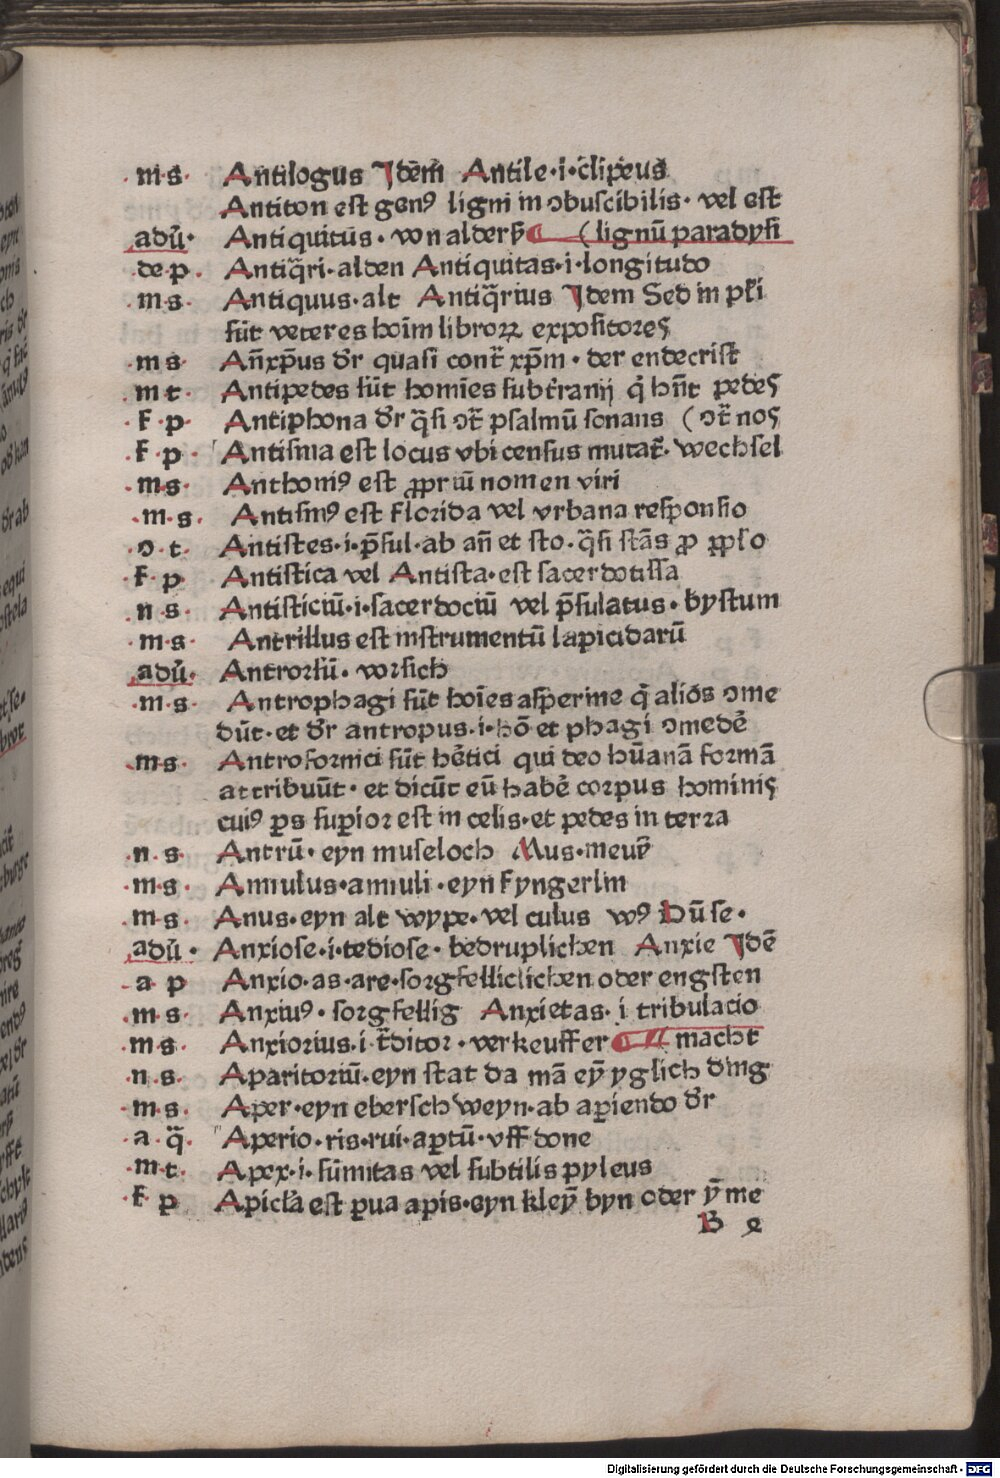 m·s· Antilogus Jdēm̄ Antile·i·clipeus
Antiton est genꝰ ligni in ꝯbuscibilis· vel est
adū· Antiquitus· von alders (lignū paradysi
de·p· Antiq̄ri·alden Antiquitas·i·longitudo
m·s· Antiquus·alt Antiq̄rius Jdem Sed in pl̄i
sūt veteres hoīm libroꝝ expositores
m s· An̄xp̄us dr̄ quasi cont̄ xp̄m· der endecrist
m t· Antipedes sūt homīes subt̄ranij q̄ hn̄t pedes
f·p· Antiphona dr̄ q̄si ꝯt̄ psalmū sonans (ꝯt̄ nos
f·p· Antisma est locus vbi census mutat̄· wechsel
m·s· Anthoniꝰ est ꝓpriū nomen viri
m·s· Antismꝰ est florida vel vrbana responsio
ꝯ·t· Antistes·i·p̄sul·ab an̄ et sto·q̄si stās ꝓ pp̄lo
f·p Antistica vel Antista·est sacerdotissa
n s· Antisticiū·i·sacerdociū vel p̄sulatus·bystum
m·s· Antrillus est instrumentū lapicidarū
adū· Antrorsū· vorsich
m·s· Antrophagi sūt hoīes asperime q̄ alios ꝯme
dūt·et dr̄ antropus·i·hō et phagi ꝯmedē
m·s· Antroformici sūt hētici qui deo hūanā formā
attribuūt· et dicūt eū habē corpus hominis
cuiꝰ ꝑs suꝑior est in celis·et pedes in terra
n s· Antrū· eyn museloch Mus·meuß
m·s· Annulus·annuli·eyn fyngerlin
m·s· Anus·eyn alt wype·vel culus vꝰ Hūse·
adū· Anxiose·i·tediose· bedruplichen Anxie Jdē
a p Anxio·as·are·sorgfelliclichen oder engsten
m·s· Anxiuꝰ· sorgfellig Anxietas·i tribulacio
m·s· Anxiorius·i·t̄ditor·verkeuffer macht
n·s· Aparitoriū·eyn stat da mā eȳ yglich ding
m·s· Aper·eyn eberschweyn·ab apiendo dr̄
a·q̄· Aperio·ris·rui·aptū·vff done
m·t· Apex·i·sūmitas vel subtilis pyleus
f p Apicl̄a est ꝑua apis·eyn kleȳ byn oder ȳme
B e
Digitalisierung gefördert durch die Deutsche Forschungsgemeinschaft - DFG